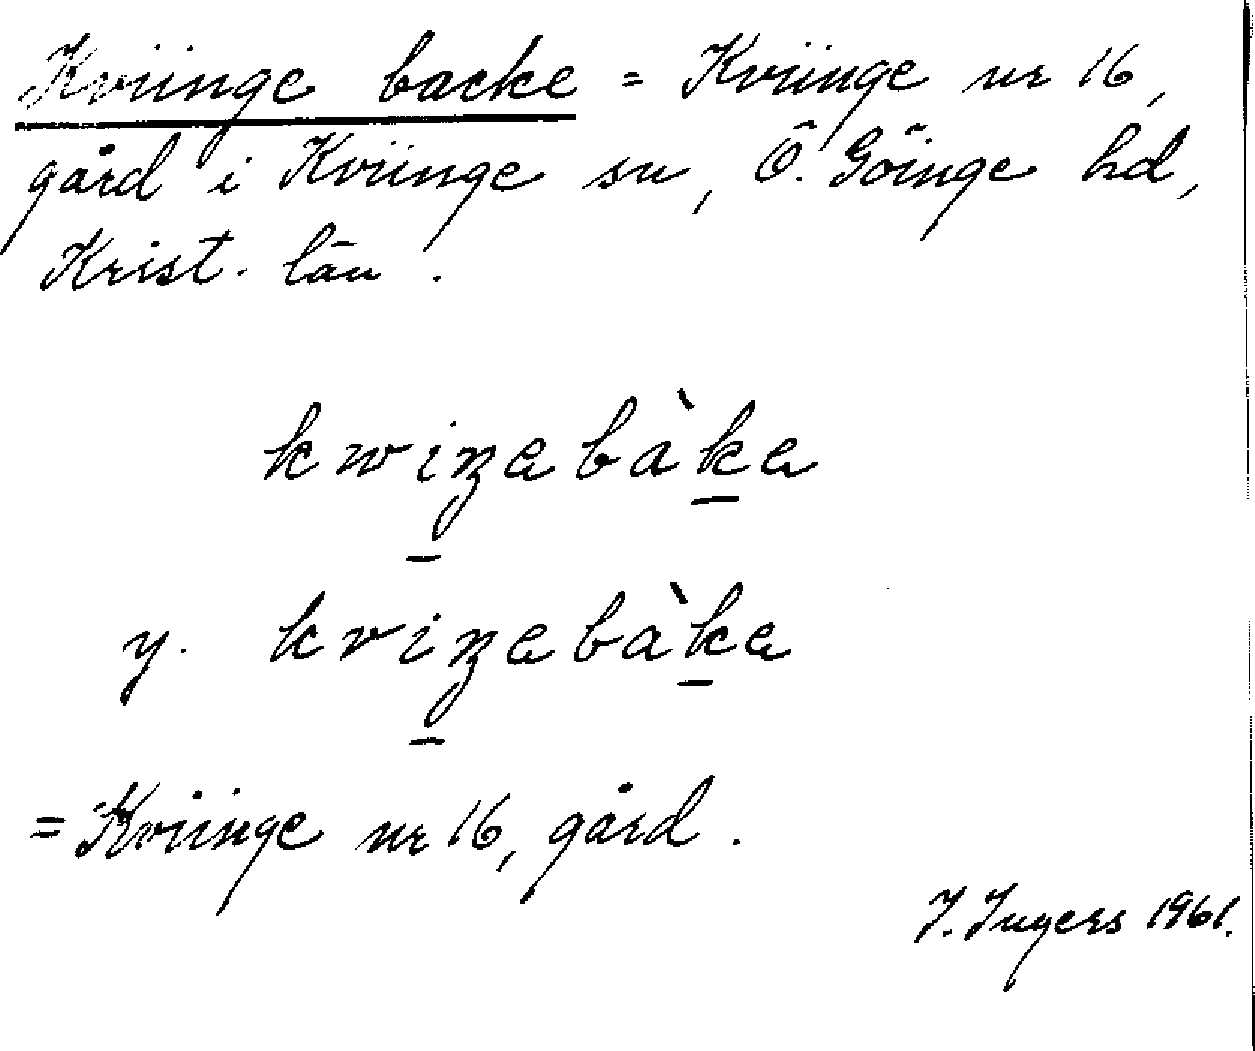 Kviinge backe = Kviinge nr 16,
gård i Kviinge sn, Ö. Göinge hd,
Krist. län.
kwiŋabàka
y. kviŋabàka
= Kviinge nr 16, gård.
I. Ingers 1961.